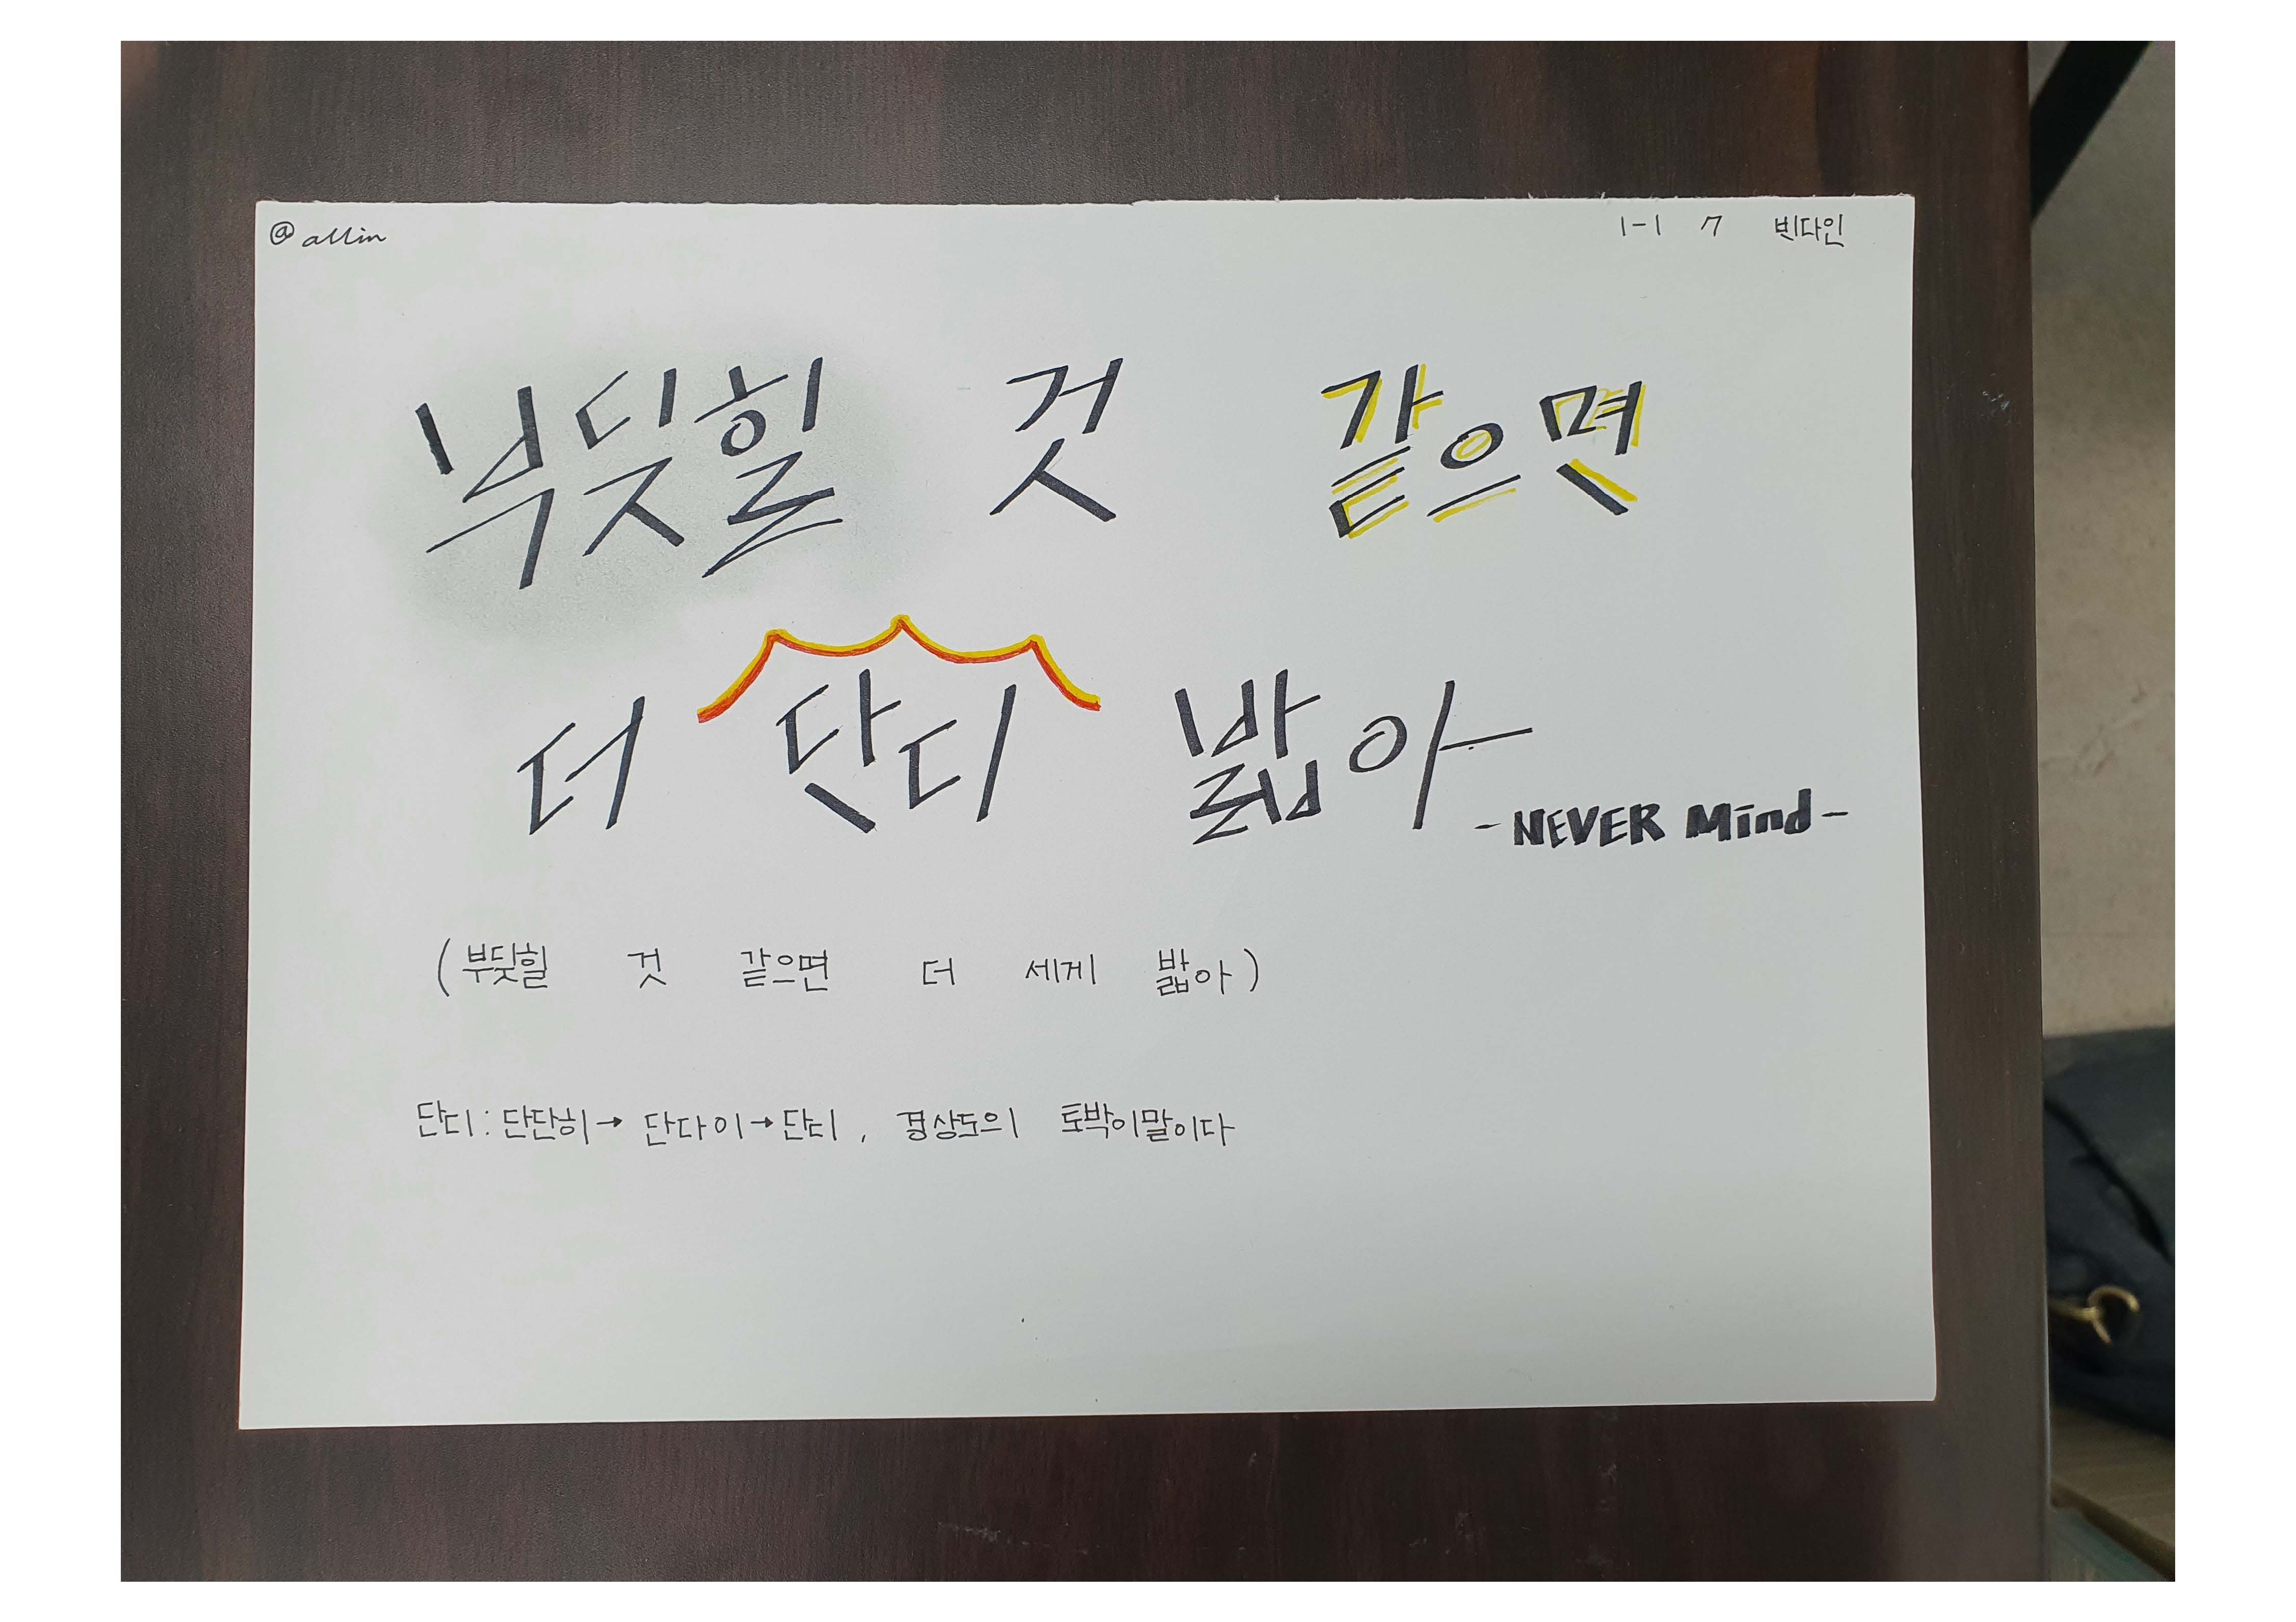 @allin
1-1 7 빈다인
부딪힐 것 같으면
더 단디 밟아
- NEVER Mind -
(부딪힐 것 같으면 더 세게 밟아)
단디 : 단단히 → 단다이 → 단디, 경상도의 토박이말이다